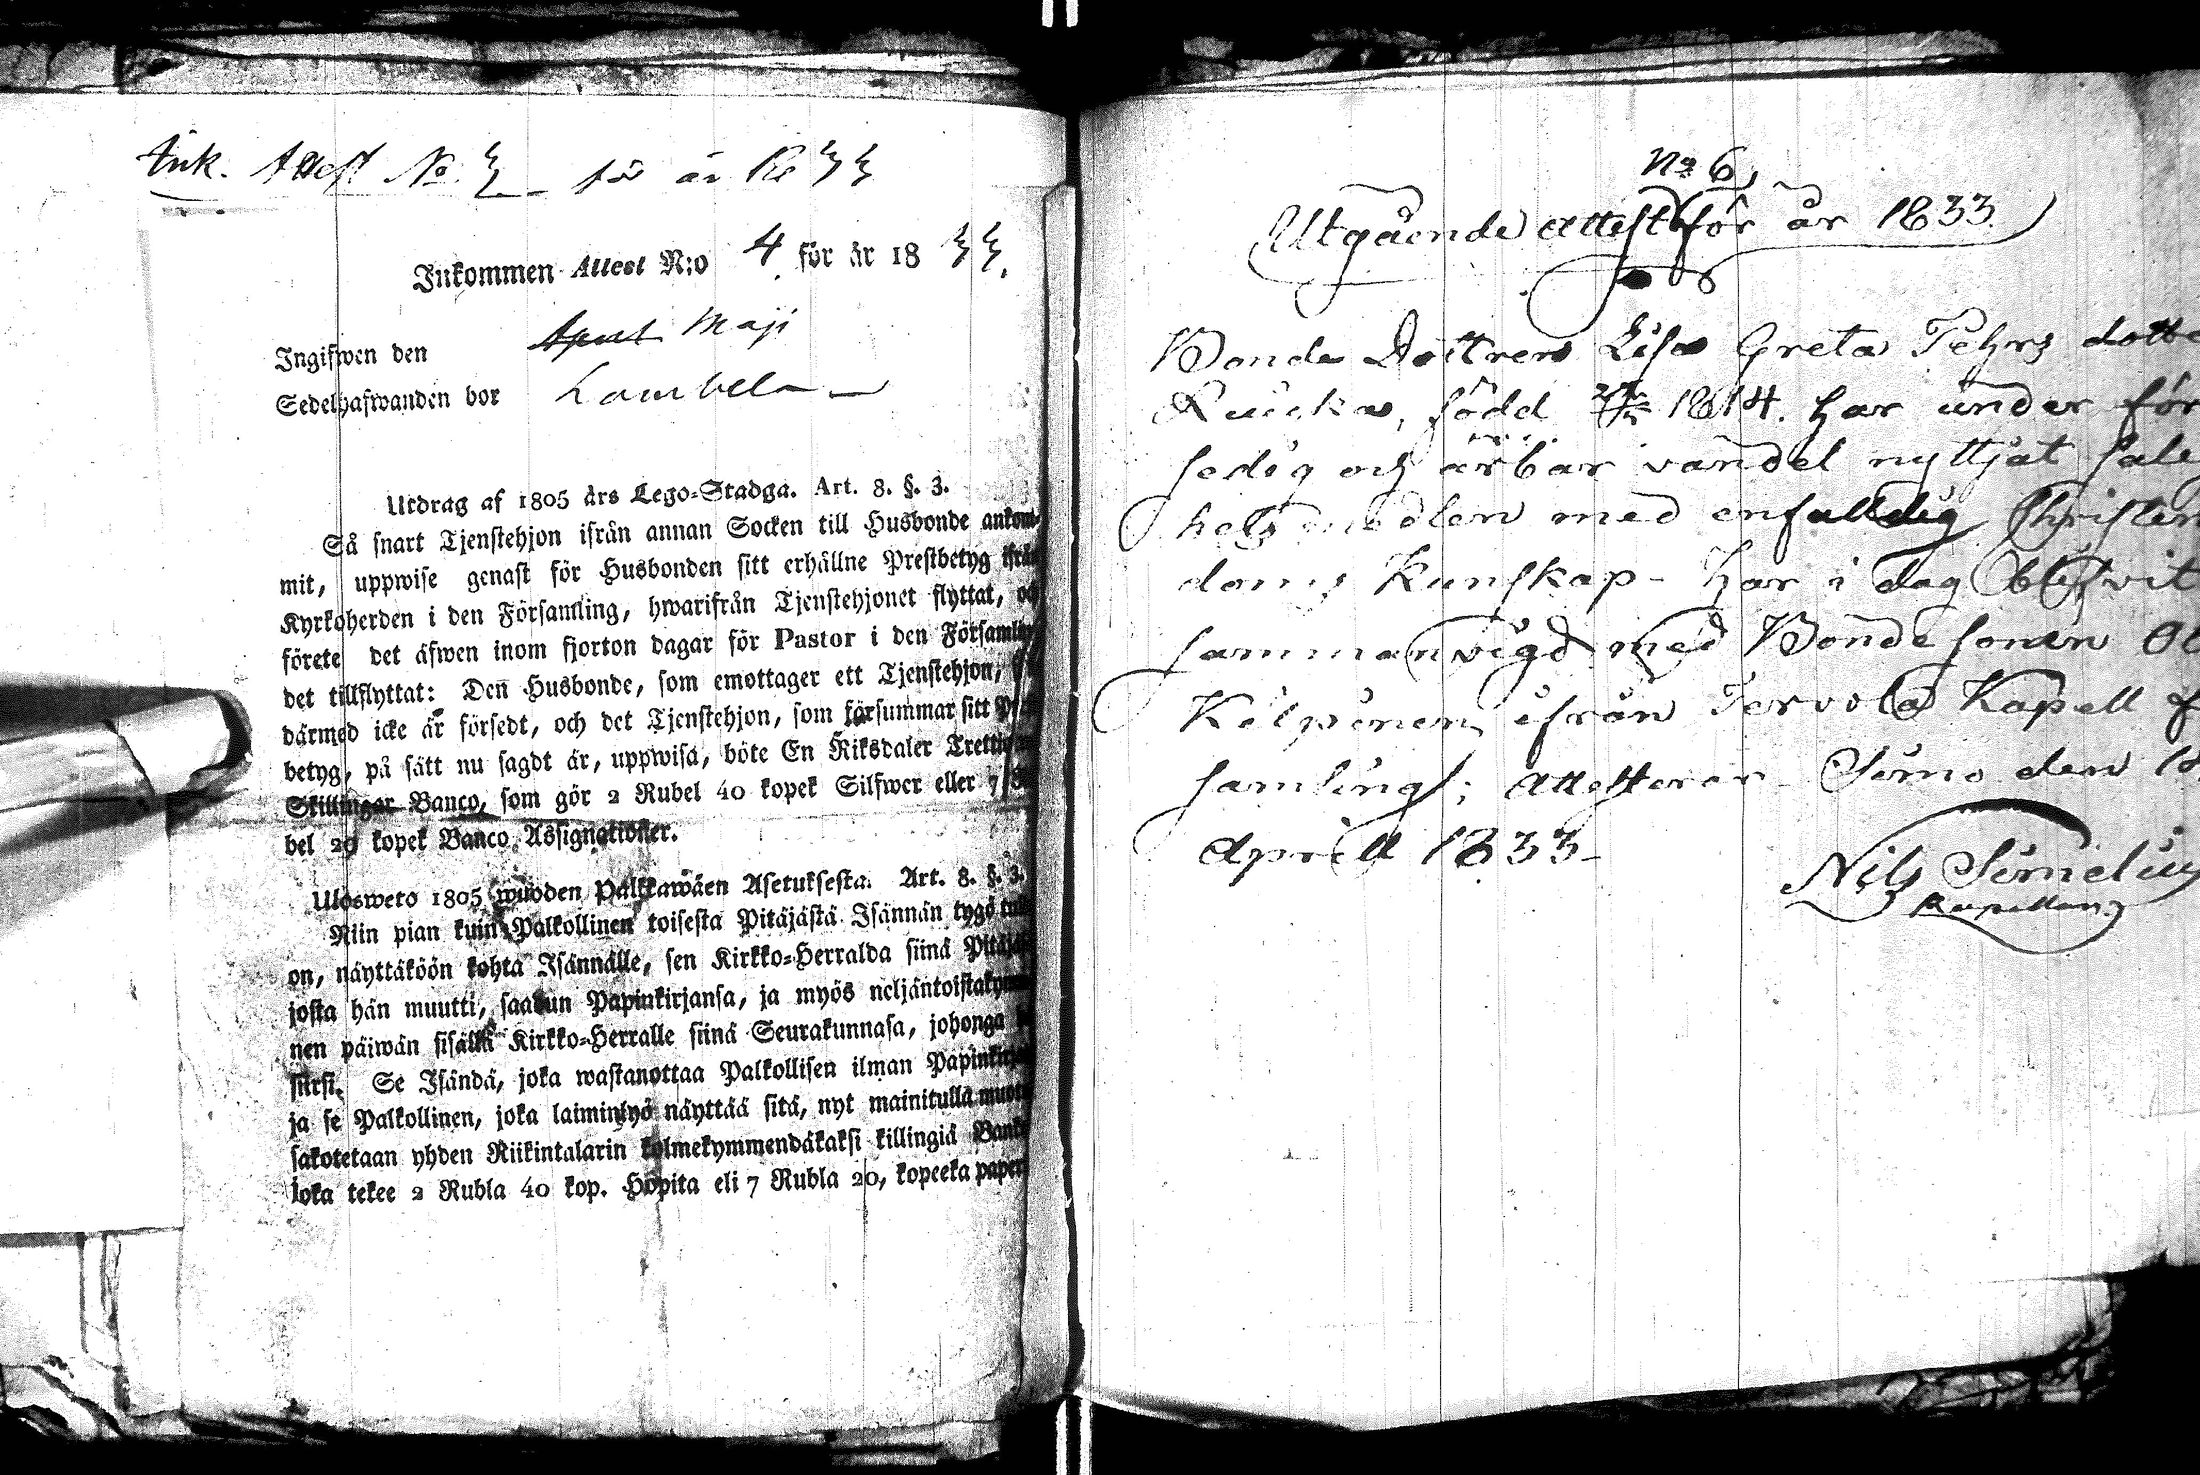 Ink. Attest No. för år 1833
Inkommen Attest N:o 4 för år 1833.
Ingifwen den Maji
Sedelhafwanden bor
Utdrag af 1805 års Lego-Stadga. Art. 8. §. 3.
Så snart Tjenstehjon ifrån annan Socken till Husbonde ankom-
mit, uppwise genast för Husbonden sitt erhållne Prestbetyg ifrån
Kyrkoherden i den Församling, hwarifrån Tjenstehjonet flyttat, och
förete det äfwen inom fjorton dagar för Pastor i den Församling
det tillflyttat: Den Husbonde, som emottager ett Tjenstehjon,
därmed icke är försedt, och det Tjenstehjon, som försummar sitt
betyg, på sätt nu sagdt är, uppwisa, böte En Riksdaler
Skillingar Banco, som gör 2 Rubel 40 kopek Silfwer eller 7
bel 20 kopek Banco Assignationer.
Ulosweto 1805 wuoden Palkkawäen Asetuksesta. Art. 8. §. 3.
Niin pian kuin Palkollinen toisesta Pitäjästä Isännän tygö
on, näyttäköön kohta Isännälle, sen Kirkko-Herralda siinä
josta hän muutti, saadun Papinkirjansa, ja myös
nen päiwän sisällä Kirkko-Herralle siinä Seurakunnasa, johonga
siirsi. Se Isändä, joka wastanottaa Palkollisen ilman
ja se Palkollinen, joka laiminlyö näyttää sitä, nyt mainitulla
sakotetaan yhden Riikintalarin kolmekymmendäkaksi killingiä
joka tekee 2 Rubla 40 kop. Hopita eli 7 Rubla 20, kopeeka
No 6,
Utgående attest för år 1833.
Bonde Dottren Lisa Greta Pehrs dotte
född 1814. har under för
sedig och ärbar vandel nyttjat salig
hets medlen med enfalldig Christen
doms Kunskap - har i dag blifvit
sammanvigd med Bonde sonen
Kilpinen ifrån Tervola Kapell f
samling; attesterar Simo den 18
Aprill 1833-
Nils Simelius
Kapellan